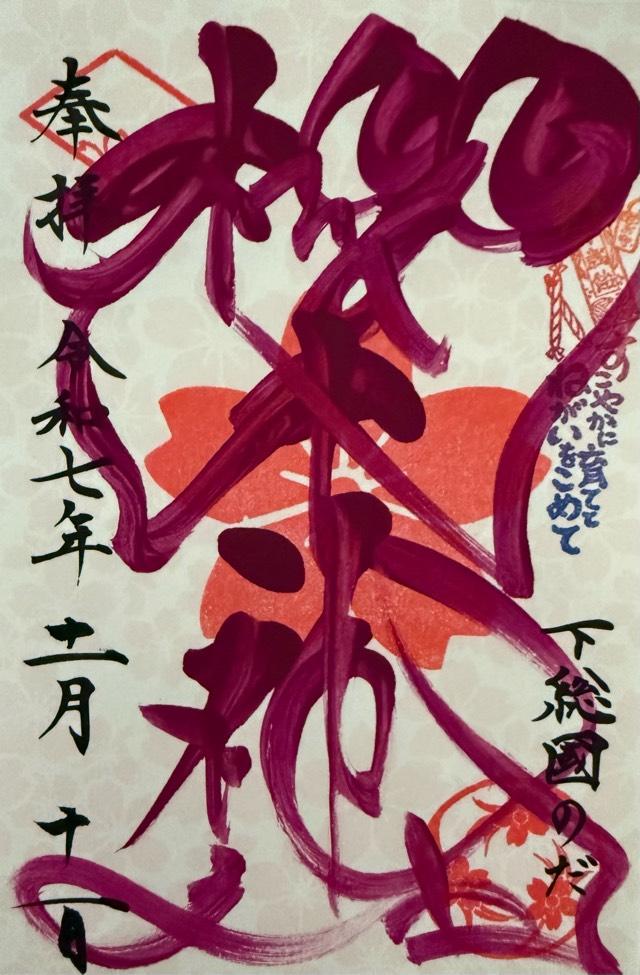 すこやかに育てて
ねがいをこめて
下総國のだ
櫻木神社
奉拝 令和七年 十一月 十一日